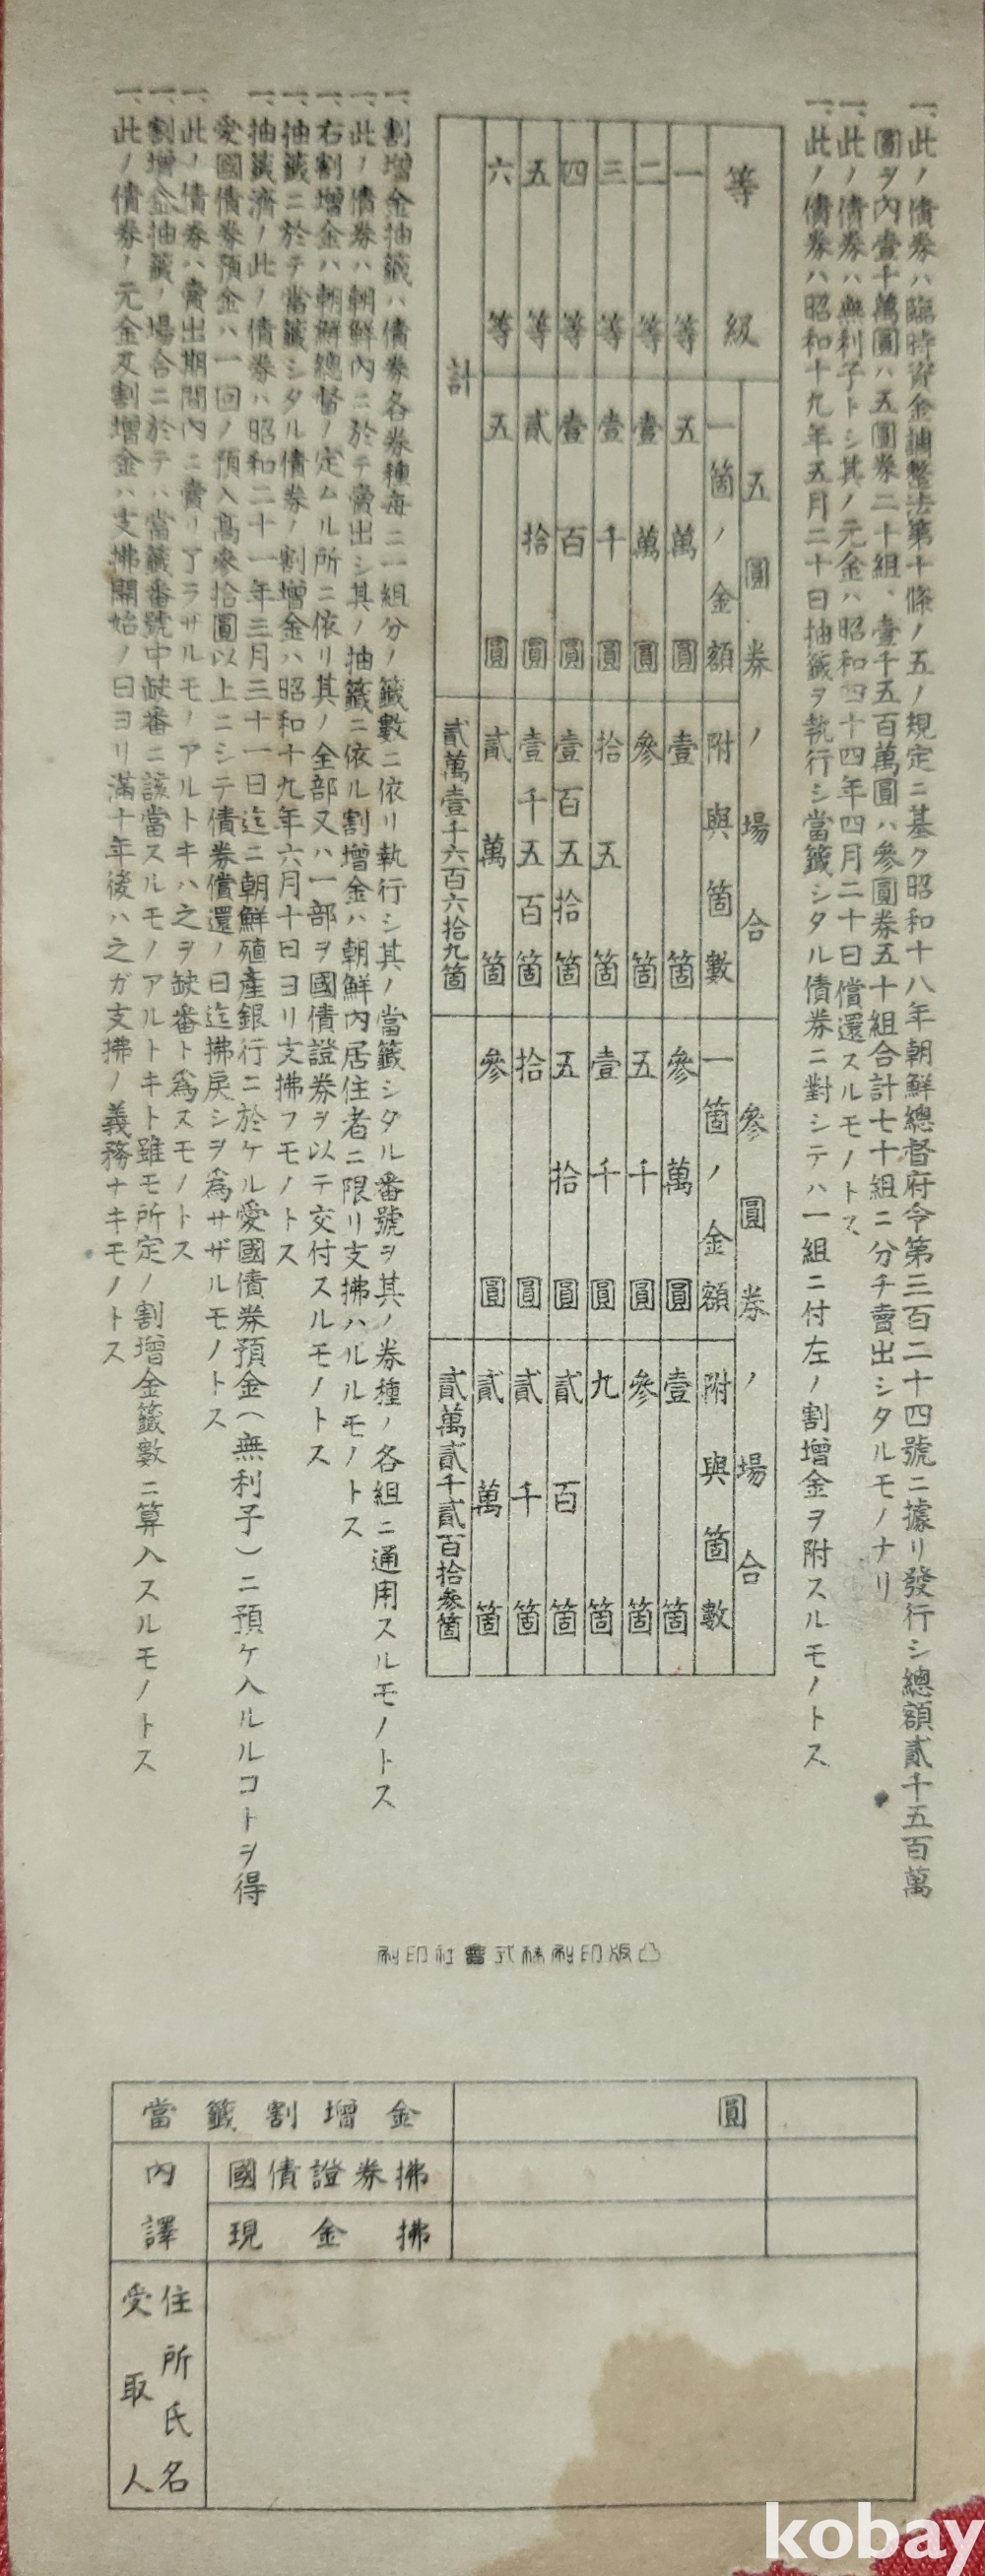 一、此ノ債券ハ臨時資金調整法第十條ノ五ノ規定ニ基ク昭和十八年朝鮮總督府令第三百二十四號ニ據リ發行シ總額貳千五百萬
圓ヲ內壹千萬圓ハ五圓券二十組、壹千五百萬圓ハ參圓券五十組合計七十組ニ分チ賣出シタルモノナリ
一、此ノ債券ハ無利子トシ其ノ元金ハ昭和四十四年四月二十日償還スルモノトス
一、此ノ債券ハ昭和十九年五月二十日抽籤ヲ執行シ當籤シタル債券ニ對シテハ一組ニ付左ノ割增金ヲ附スルモノトス
等級
五圓券ノ場合
參圓券ノ場合
一箇ノ金額
附與箇數
一箇ノ金額
附與箇數
一等 五萬圓 壹箇 參萬圓 壹箇
二等 壹萬圓 參箇 五千圓 參箇
三等 壹千圓 拾五箇 壹千圓 九箇
四等 壹百圓 壹百五拾箇 五拾圓 貳百箇
五等 貳拾圓 壹千五百箇 拾圓 貳千箇
六等 五圓 貳萬箇 參圓 貳萬箇
計 貳萬壹千六百六拾九箇 貳萬貳千貳百拾參箇
一、割增金抽籤ハ債券各券種每ニ一組分ノ籤數ニ依リ執行シ其ノ當籤シタル番號ヲ其ノ券種ノ各組ニ通用スルモノトス
一、此ノ債券ハ朝鮮內ニ於テ賣出シ其ノ抽籤ニ依ル割增金ハ朝鮮內居住者ニ限リ支拂ハルルモノトス
一、右割增金ハ朝鮮總督ノ定ムル所ニ依リ其ノ全部又ハ一部ヲ國債證券ヲ以テ交付スルモノトス
一、抽籤ニ於テ當籤シタル債券ノ割增金ハ昭和十九年六月十日ヨリ支拂フモノトス
一、抽籤濟ノ此ノ債券ハ昭和二十一年三月三十一日迄ニ朝鮮殖產銀行ニ於ケル愛國債券預金(無利子)ニ預ケ入ルルコトヲ得
愛國債券預金ハ一回ノ預入高參拾圓以上ニシテ債券償還ノ日迄拂戾シヲ爲サザルモノトス
一、此ノ債券ハ賣出期間內ニ賣リ了ラザルモノアルトキハ之ヲ缺番ト爲スモノトス
一、割增金抽籤ノ場合ニ於テハ當籤番號中缺番ニ該當スルモノアルトキト雖モ所定ノ割增金籤數ニ算入スルモノトス
一、此ノ債券ノ元金及割增金ハ支拂開始ノ日ヨリ滿十年後ハ之ガ支拂ノ義務ナキモノトス
凸版印刷株式會社印刷
當籤割增金 圓
內譯
國債證券拂
現金拂
受取人
住所氏名
kobay